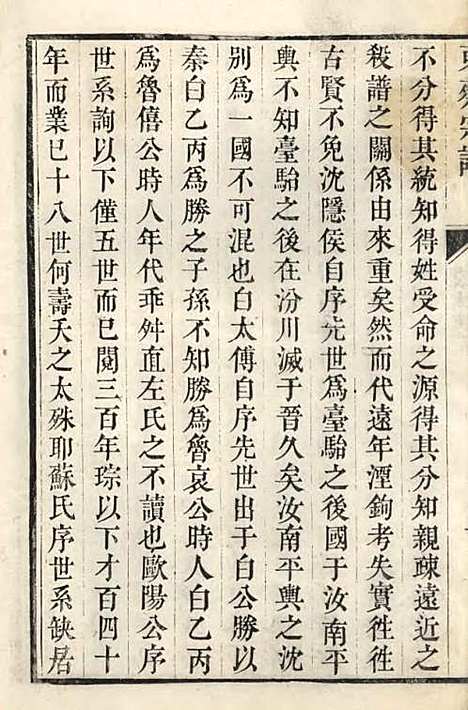 不分得其統知得姓受命之源得其分知親疎遠近之
殺譜之關係由來重矣然而代遠年湮鉤考失實徃徃
古賢不免沈隱侯自序先世爲臺駘之後國于汝南平
輿不知臺駘之後在汾川滅于晉久矣汝南平輿之沈
別爲一國不可混也白太傅自序先世出于白公勝以
秦白乙丙爲勝之子孫不知勝爲魯哀公時人白乙丙
爲魯僖公時人年代乖舛直左氏之不讀也歐陽公序
世系詢以下僅五世而巳閱三百年琮以下才百四十
年而業巳十八世何壽夭之太殊耶蘇氏序世系缺居